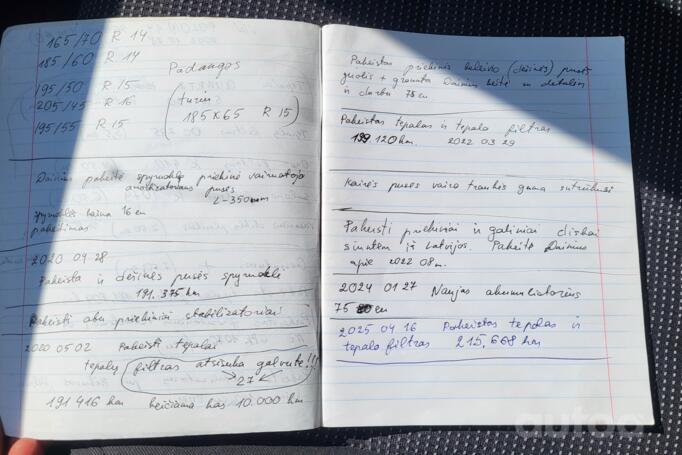 165/70 R 14
185/60 R 14
195/50 R 15
205/45 R 16
195/55 R 15
Padangos
turiu
185 x 65 R 15
Dainius pakeitė spyruoklę priekinė vairuotojo
amortizatoriaus pusės
L-350mm
spyruoklės kaina 16 eu
pakeitimas
2020 04 28
Pakeista ir dešinės pusės spyruoklė
191.375 km
Pakeisti abu priekiniai stabilizatoriai
2020 05 02 Pakeisti tepalai
tepalų filtras atsisuka galvute!!!
27
191 416 km keičiama kas 10.000 km
Pakeistas priekinis keleivio (dešinės) pusės
guolis + granata Dainius keitė su detalėm
ir darbu 75 eu
Pakeistas tepalas ir tepalo filtras
199.120 km. 2022 03 29
Kairės pusės vairo traukės guma sutrūkusi
Pakeisti priekiniai ir galiniai diskai
siuntėm iš Latvijos. Pakeitė Dainius
apie 2022 08 m.
2024 01 27 Naujas akumuliatorius
75 eu
2025 04 16 Pakeistas tepalas ir
tepalo filtras 215.668 km
autoa